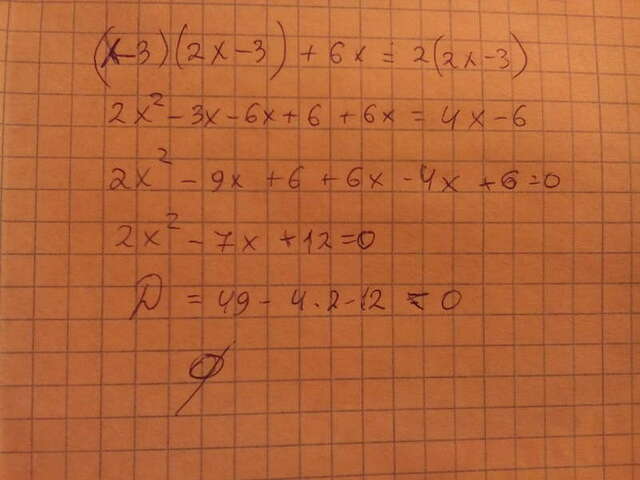 (x-3)(2x-3) + 6x = 2(2x-3)
2x² - 3x - 6x + 6 + 6x = 4x - 6
2x² - 9x + 6 + 6x - 4x + 6 = 0
2x² - 7x + 12 = 0
D = 49 - 4 · 2 - 12 < 0
∅